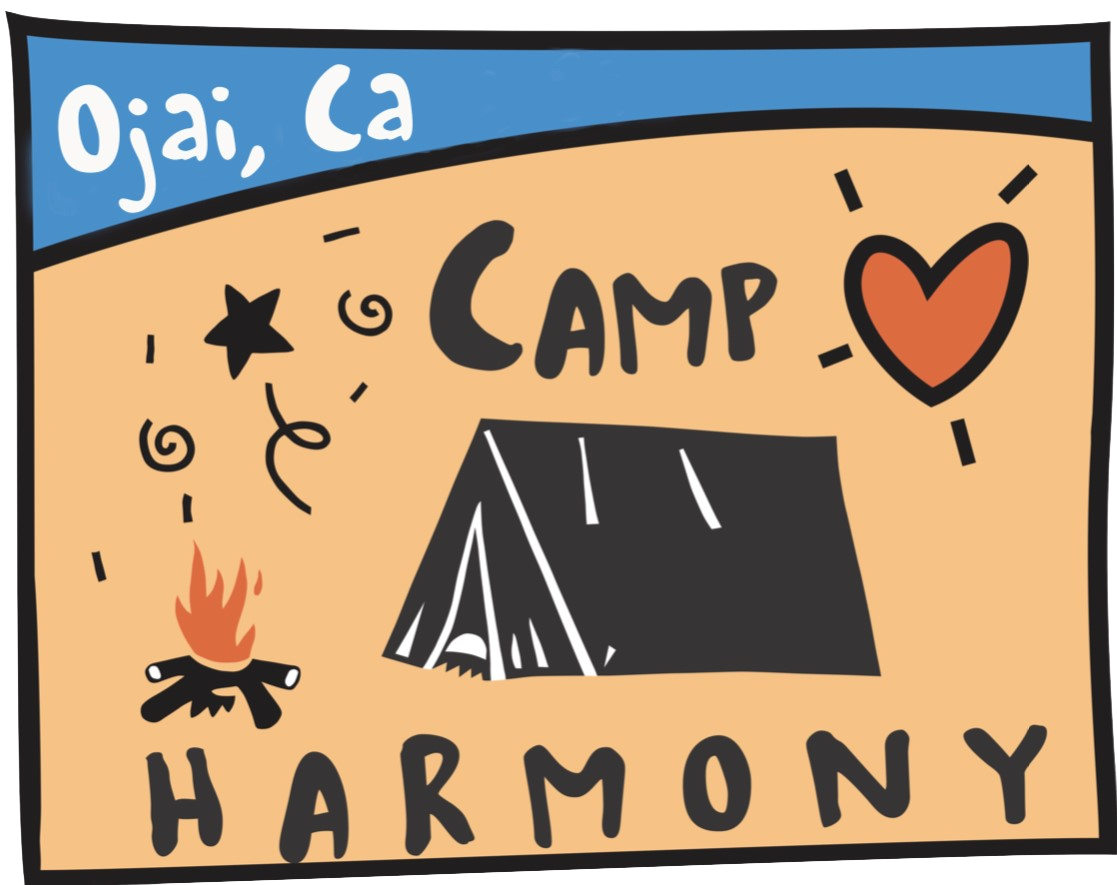 Ojai, Ca
CAMP
HARMONY